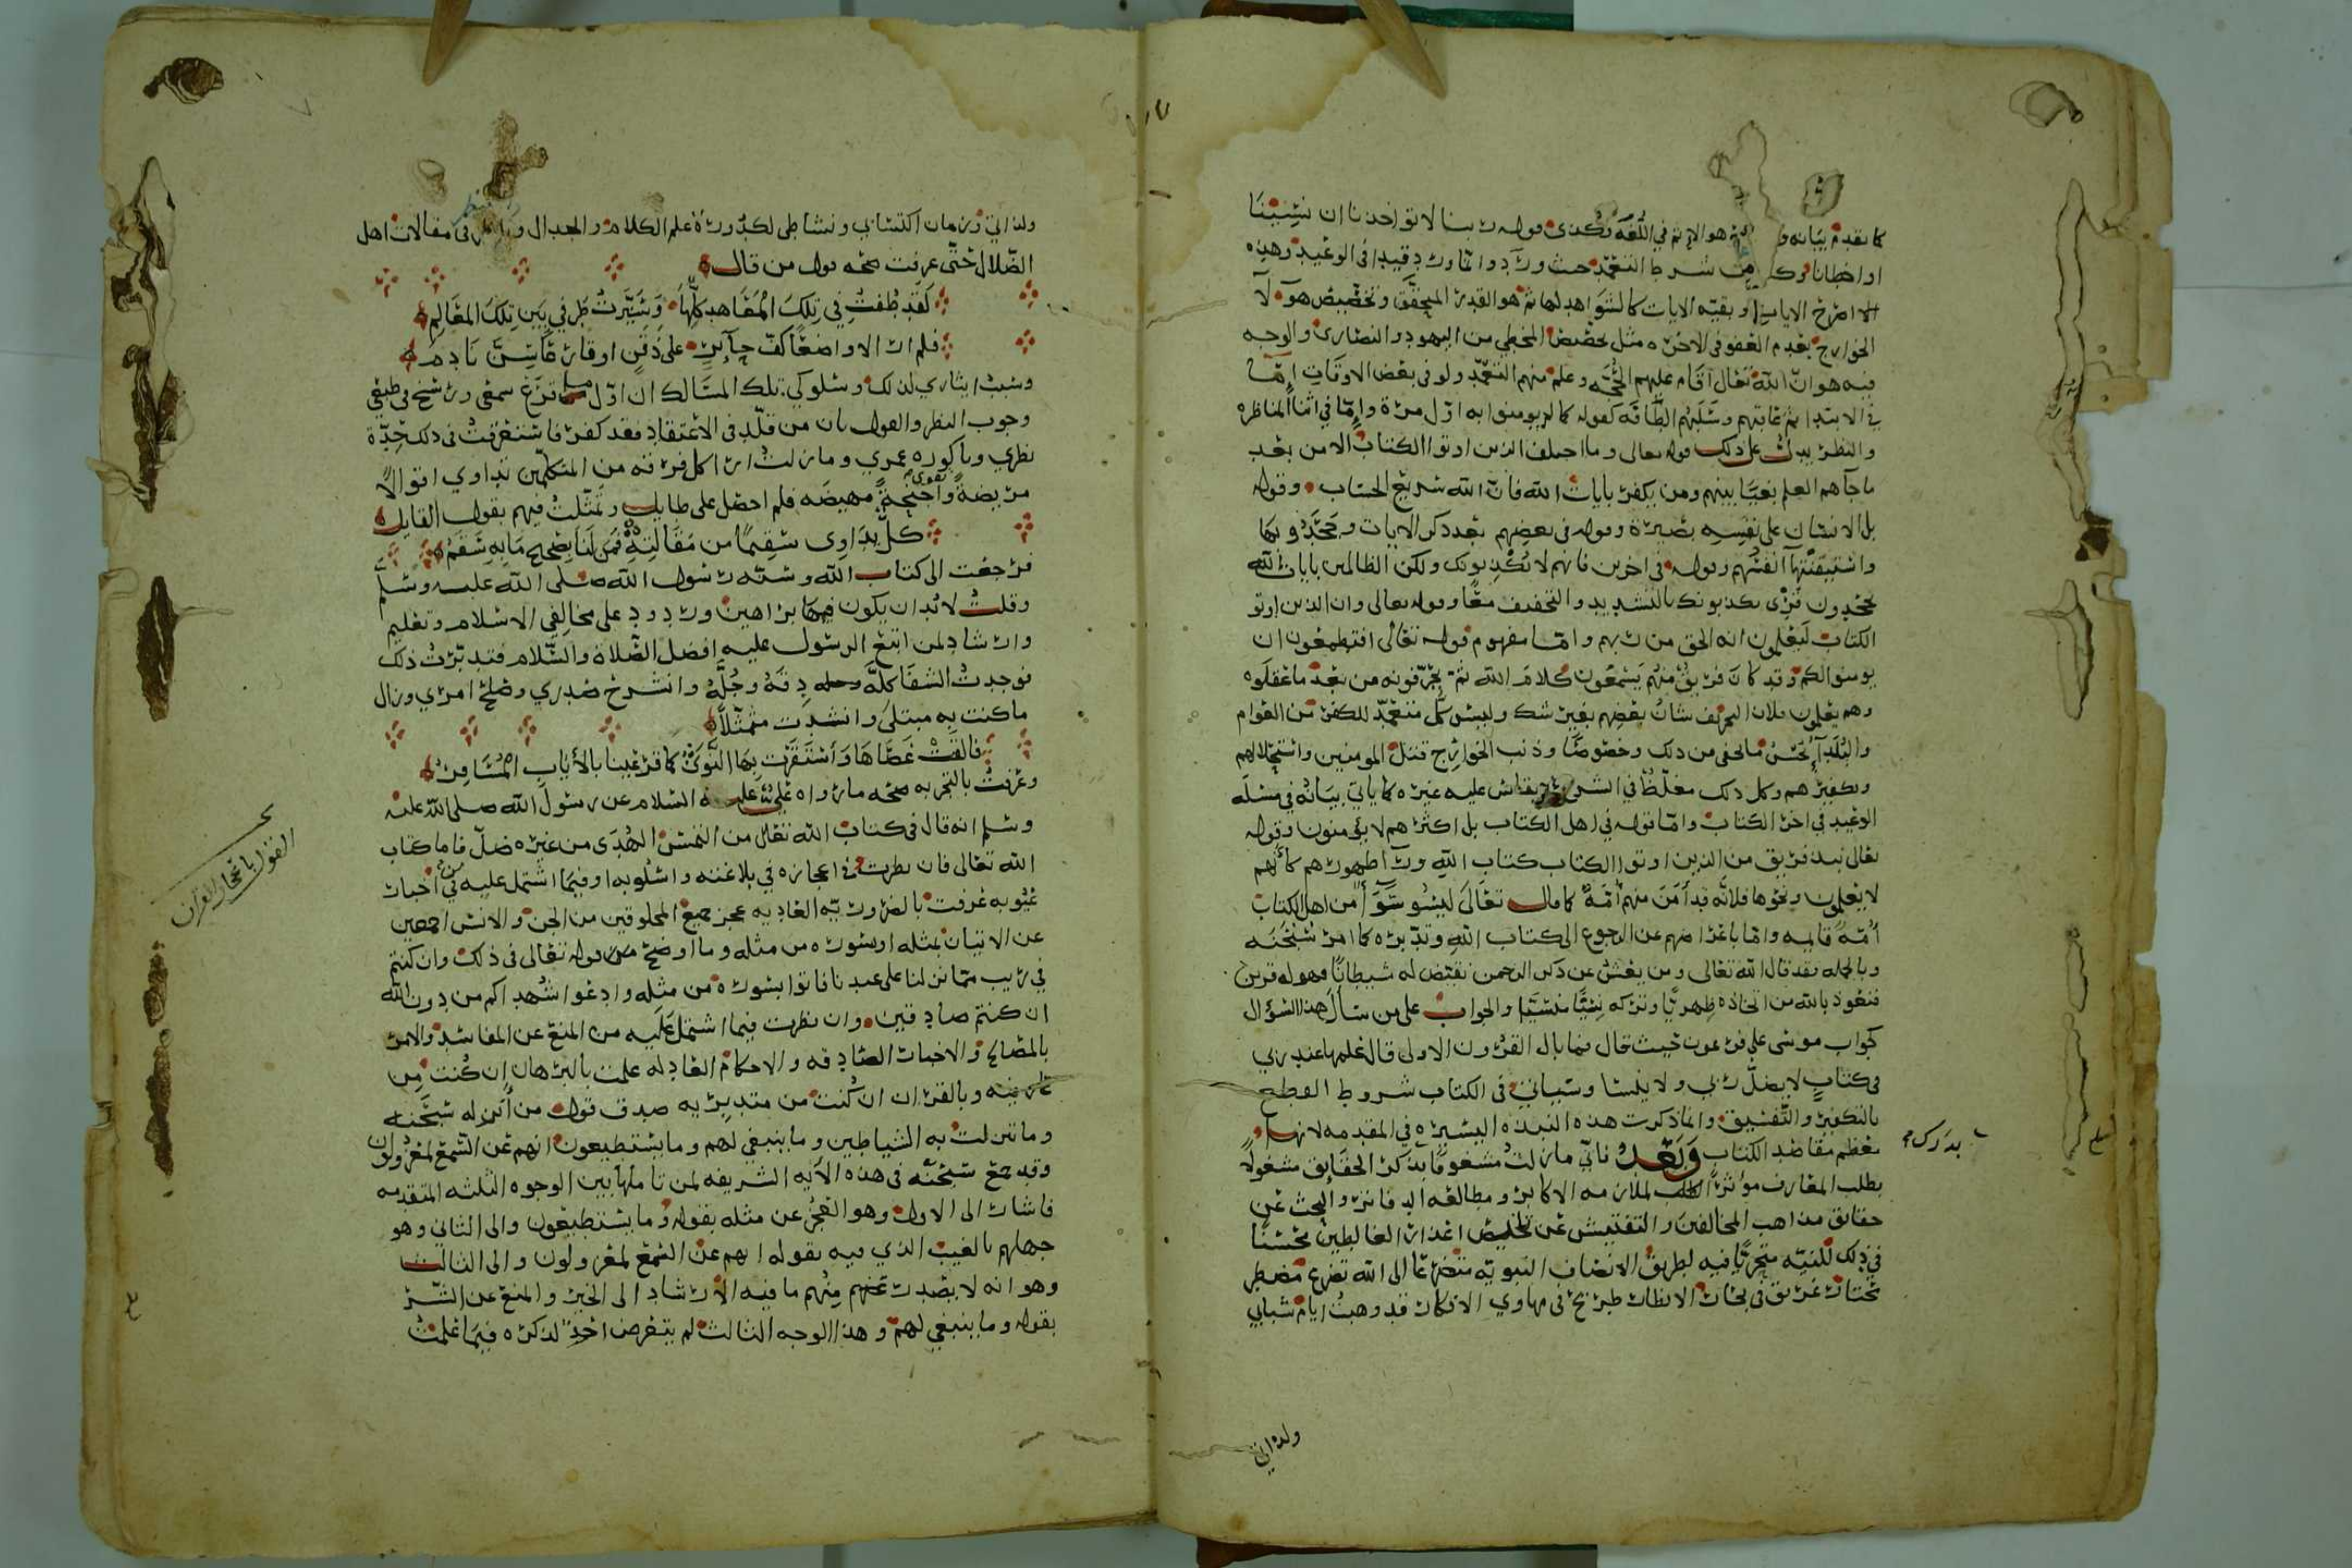 كما تقدم بيانه و هو الاثم في اللغة وكذى قوله ربنا لا تواخذنا ان نسينا
او اخطانا من شرط التعمد حيث ورد وانما ورد قيدا في الوعيد وهذه
الاصرح الايات وبقية الايات كالشواهد لها ثم هو القدر المحقق وتخصيص هولا
الخوارج بعدم العفو في الاخره مثل تخصيص المخطي من اليهود والنصارى والوجه
فيه هو ان الله تعالى اقام عليهم الحجه وعلم منهم التعمد ولو في بعض الاوقات اما
في الابتدا ثم عاقبهم وسلبهم الطاقه كقوله كما لم يومنوا به اول مرة واما في اثنا المناظره
والنظر يدل على ذلك قوله تعالى وما اختلف الذين اوتوا الكتاب الا من بعد
ما جآهم العلم بغيا بينهم ومن يكفر بايات الله فان الله سريع الحساب وقوله
بل الانسان على نفسه بصيرة وقوله في بعضهم بعد ذكر الايات وجحدوا بها
واستيقنتها انفسهم وقوله في اخرين فانهم لا يكذبونك ولكن الظالمين بايات الله
يجحدون قرى يكذبونك بالتشديد والتخفيف معا وقوله تعالى وان الذين اوتو
الكتاب ليعلمون انه الحق من ربهم واما مفهوم قوله تعالى افتطمعون ان
يومنوا لكم وقد كان فريق منهم يسمعون كلام الله ثم يحرفونه من بعد ما عقلوه
وهم يعلمون فلان التحريف شان بعضهم بغير شك وليس كل متعمد للكفر من العوام
والبلدا يحسن ما تخفى من ذلك وخصوصا وذنب الخوارج قتل المومنين واستحلالهم
وتكفيرهم وكل ذلك مغلظ في الشرع يقاس عليه غيره كما ياتي بيانه في مسله
الوعيد في اخر الكتاب واما قوله في اهل الكتاب بل اكثرهم لا يومنون وقوله
تعالى نبذ فريق من الذين اوتوا الكتاب كتاب الله ورآ ظهورهم كانهم
لا يعلمون ونحوها فلانه قد امن منهم امة كما قال تعالى ليسو سوآ من اهل الكتاب
امة قايمه واما باعراضهم عن الرجوع الى كتاب الله وتدبره كما امر سبحنه
وبالجمله فقد قال الله تعالى ومن يعش عن ذكر الرحمن نقيض له شيطانا فهو له قرين
فنعوذ بالله من اتخاذه ظهريا وتركه نسيا منسيا والجواب على من سال هذا السوال
كجواب موسى على فرعون حيث قال فما بال القرون الاولى قال علمها عند ربي
في كتاب لا يضل ربي ولا ينسا وسياتي في الكتاب شروط القطع
بالتكفير والتفسيق وانما ذكرت هذه النبذه اليسيره في المقدمه لانها
معظم مقاصد الكتاب وبعد فاني ما زلت مشغوفا بدرك الحقايق مشغولا
بطلب المعارف موثرا الطلب لملازمه الاكابر ومطالعه الدفاتر والبحث عن
حقايق مذاهب المخالفين والتفتيش عن تلخيص اعذار الغالطين محسنا
في ذلك للنيه متحريا فيه لطريق الانصاف النبويه متضرعا الى الله تضرع مضطر
محتار غريق في بحار الانظار طريح في مهاوي الافكار قد وهبت ايام شبابي
بدرك
ولذاتي
ولذاتي وزمان اكتسابي ونشاطي لكدورة علم الكلام والجدال و في مقالات اهل
الضلال حتى عرفت صحه قول من قال
لقد طفت في تلك المعاهد كلها وسيرت طرفي بين تلك المعالم
فلم ار الا واضعا كف حاير على ذقن او قارعا سن نادم
وسبب ايثاري لذلك وسلوكي تلك المسالك ان اول ما قرع سمعي ورسخ في طبعي
وجوب النظر والقول بان من قلد في الاعتقاد فقد كفر فاستغرقت في ذلك حدة
نظري وباكوره عمري وما زلت ارى كل فرقه من المتكلمين تداوي اقوالا
مريضة وتقوي اجنحة مهيضه فلم احصل على طايل وتمثلت فيهم بقول القايل
كل يداوى سقيما من مقالته فمن لنا بصحيح ما به سقم
فرجعت الى كتاب الله وسنه رسول الله صلى الله عليه وسلم
وقلت لا بد ان يكون فيهما براهين وردود على مخالفي الاسلام وتعليم
وارشاد لمن اتبع الرسول عليه افضل الصلاة والسلام فتدبرت ذلك
فوجدت الشفا كله دقه وجله وانشرح صدري وصلح امري وزال
ما كنت به مبتلى وانشدت متمثلا
فالقت عصاها واستقرت بها النوى كما قر عينا بالاياب المسافر
وعرفت بالتجربه صحه ما رواه علي عليه السلام عن رسول الله صلى الله عليه
وسلم انه قال في كتاب الله تعالى من التمس الهدى من غيره ضل فاما كتاب
الله تعالى فان نظرت في اعجازه في بلاغته واسلوبه او فيما اشتمل عليه من اخبار
غيوبه عرفت بالضروريه العاديه عجز جميع المخلوقين من الجن والانس اجمعين
عن الاتيان بمثله او بسوره من مثله وما اوضح قوله تعالى في ذلك وان كنتم
في ريب مما نزلنا على عبدنا فاتوا بسوره من مثله وادعوا شهداكم من دون الله
ان كنتم صادقين وان نظرت فيما اشتمل عليه من المنع عن المفاسد والامر
بالمصالح والاخبار الصادقه والاحكام العادله علمت بالبرهان ان كنت من
عارفيه وبالقران ان كنت من متدبريه صدق قول من انزله سبحنه
وما تنزلت به الشياطين وما ينبغي لهم وما يستطيعون انهم عن السمع لمعزولون
وقد جمع سبحنه في هذه الآيه الشريفه لمن تاملها بين الوجوه الثلثه المتقدمه
فاشار الى الاول وهو العجز عن مثله بقوله وما يستطيعون والى الثاني وهو
جهلهم بالغيب الذي فيه بقوله انهم عن السمع لمعزولون والى الثالث
وهو انه لا يصدر عنهم منهم ما فيه الارشاد الى الخير والمنع عن الشر
بقوله وما ينبغي لهم وهذا الوجه الثالث لم يتعرض احد لذكره فيما علمت
القول باعجاز القران